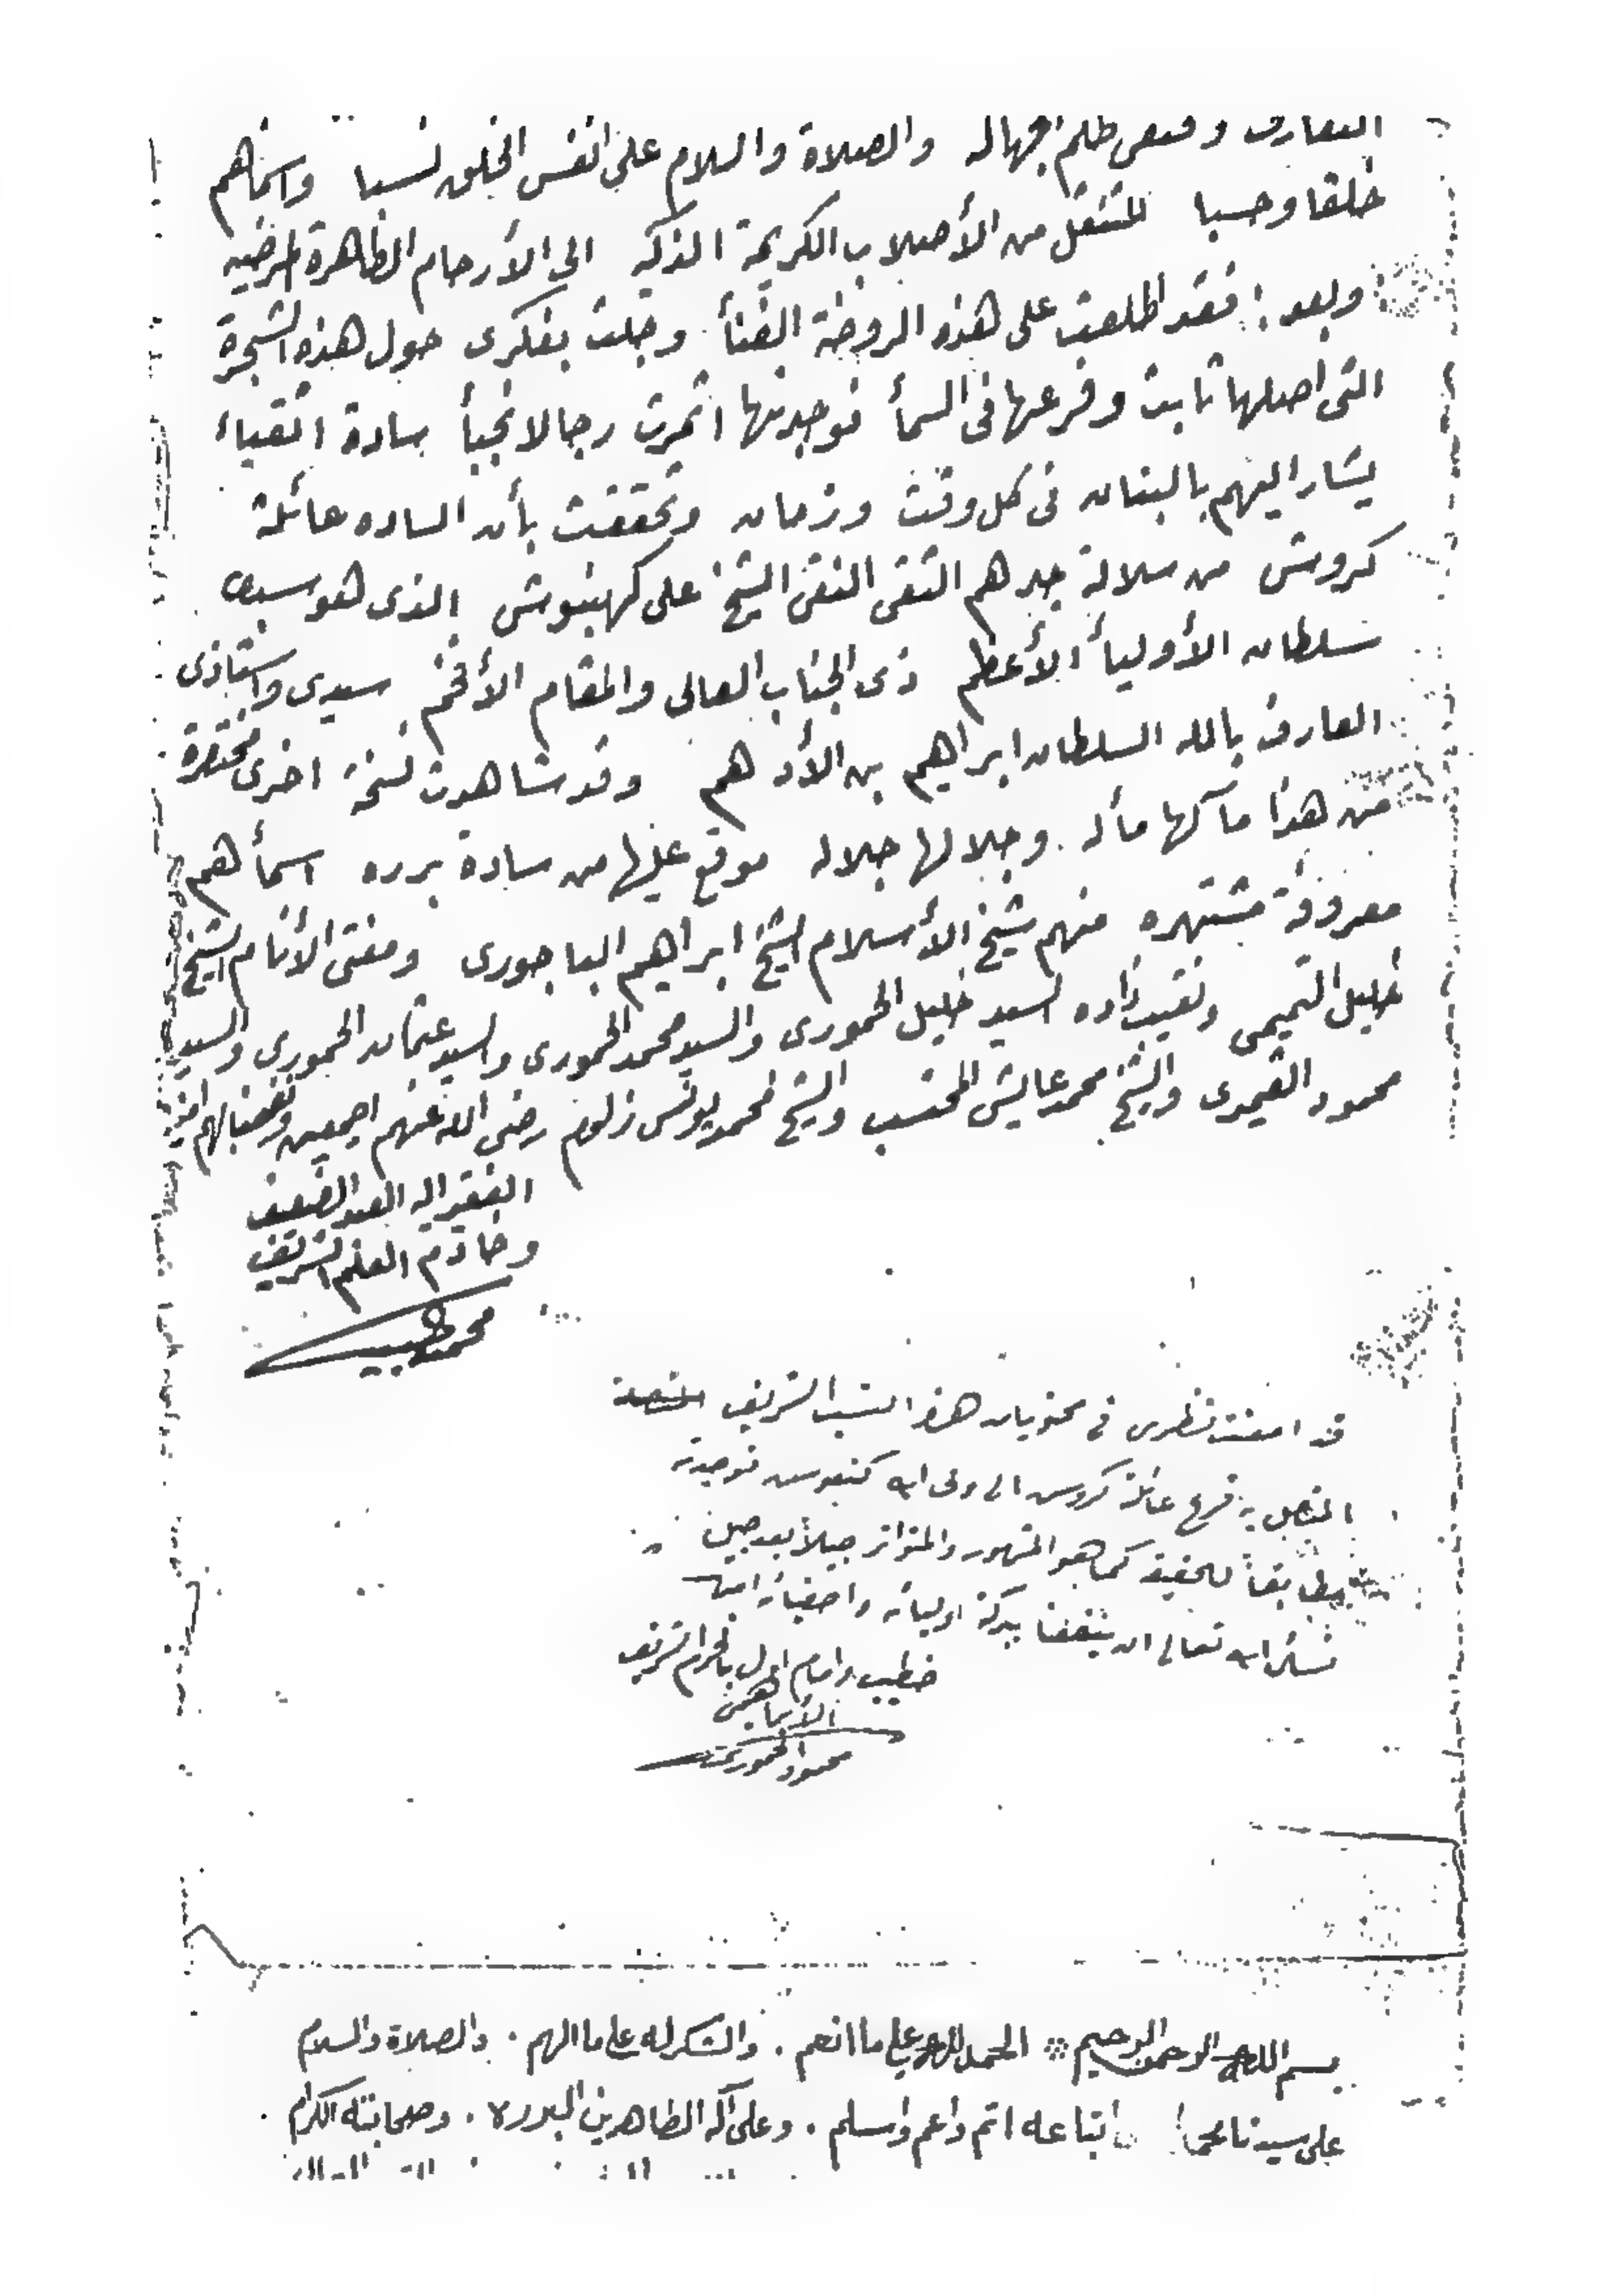 التعارف وقمعى ظلم الجهاله والصلاة والسلام على انفس الخلق نسبا واسماهم
خلقا وحسبا المنتقل من الأصلاب الكريمة الذكيه الى الأرحام الطاهرة المرضيه
وبعد : فقد اطلعت على هذه الروضة الغنأ وجلت بفكرى حول هذه الشجرة
التى اصلها ثابت وفرعها فى السمأ فوجدتها اثمرت رجالا نجبأ سادة اتقياء
يشار اليهم بالبنان فى كل وقت وزمان وتحققت بأن الساده عائلة
كروش من سلالة جدهم التقى النقى الشيخ على كهنبوش الذى هو سبط
سلطان الأوليأ الأعظم ذى الجناب العالى والمقام الأفخم سيدى واستاذى
العارف بالله السلطان ابراهيم بن الأدهم وقد شاهدت نسخة اخرى مختصرة
من هذا مآلها مأله وجلالها جلاله موقع عليها من سادة برره اسمأهم
معروفة مشتهره منهم شيخ الأسلام الشيخ ابراهيم الباجورى ومفتى الأنام الشيخ
خليل التميمى ونقيب زاده السيد خليل الحمورى والسيد محمد الحمورى والسيد عثمان الحمورى والسيد
محمود القيمرى والشيخ محمد عايش المحتسب والشيخ محمد يونس زلوم رضى الله عنهم اجمعين ونفعنا بهم امين
الفقير اليه العبد الضعيف
وخادم العلم الشريف
محمد طبيب
قد امعنت نظرى فى محتويات هذا النسب الشريف
المتصل به فرع عائلة كروش الى ولى الله كنبوش فوجدته
مطابقاً للحقيقة كما هو المشهور والمتواتر جيلاً بعد جيل
نسأل الله تعالى ان ينفعنا ببركة اوليائه واصفيائه امين
خطيب وامام اول بالحرم الشريف
الأبراهيمى
محمود الحمورى
بسم الله الرحمن الرحيم * الحمد لله على ما انعم . والشكر له على ما الهم . والصلاة والسلام
على سيدنا محمد اتباعه اتم واعم واسلم . وعلى آله الطاهرين البرره . وصحابته الكرام